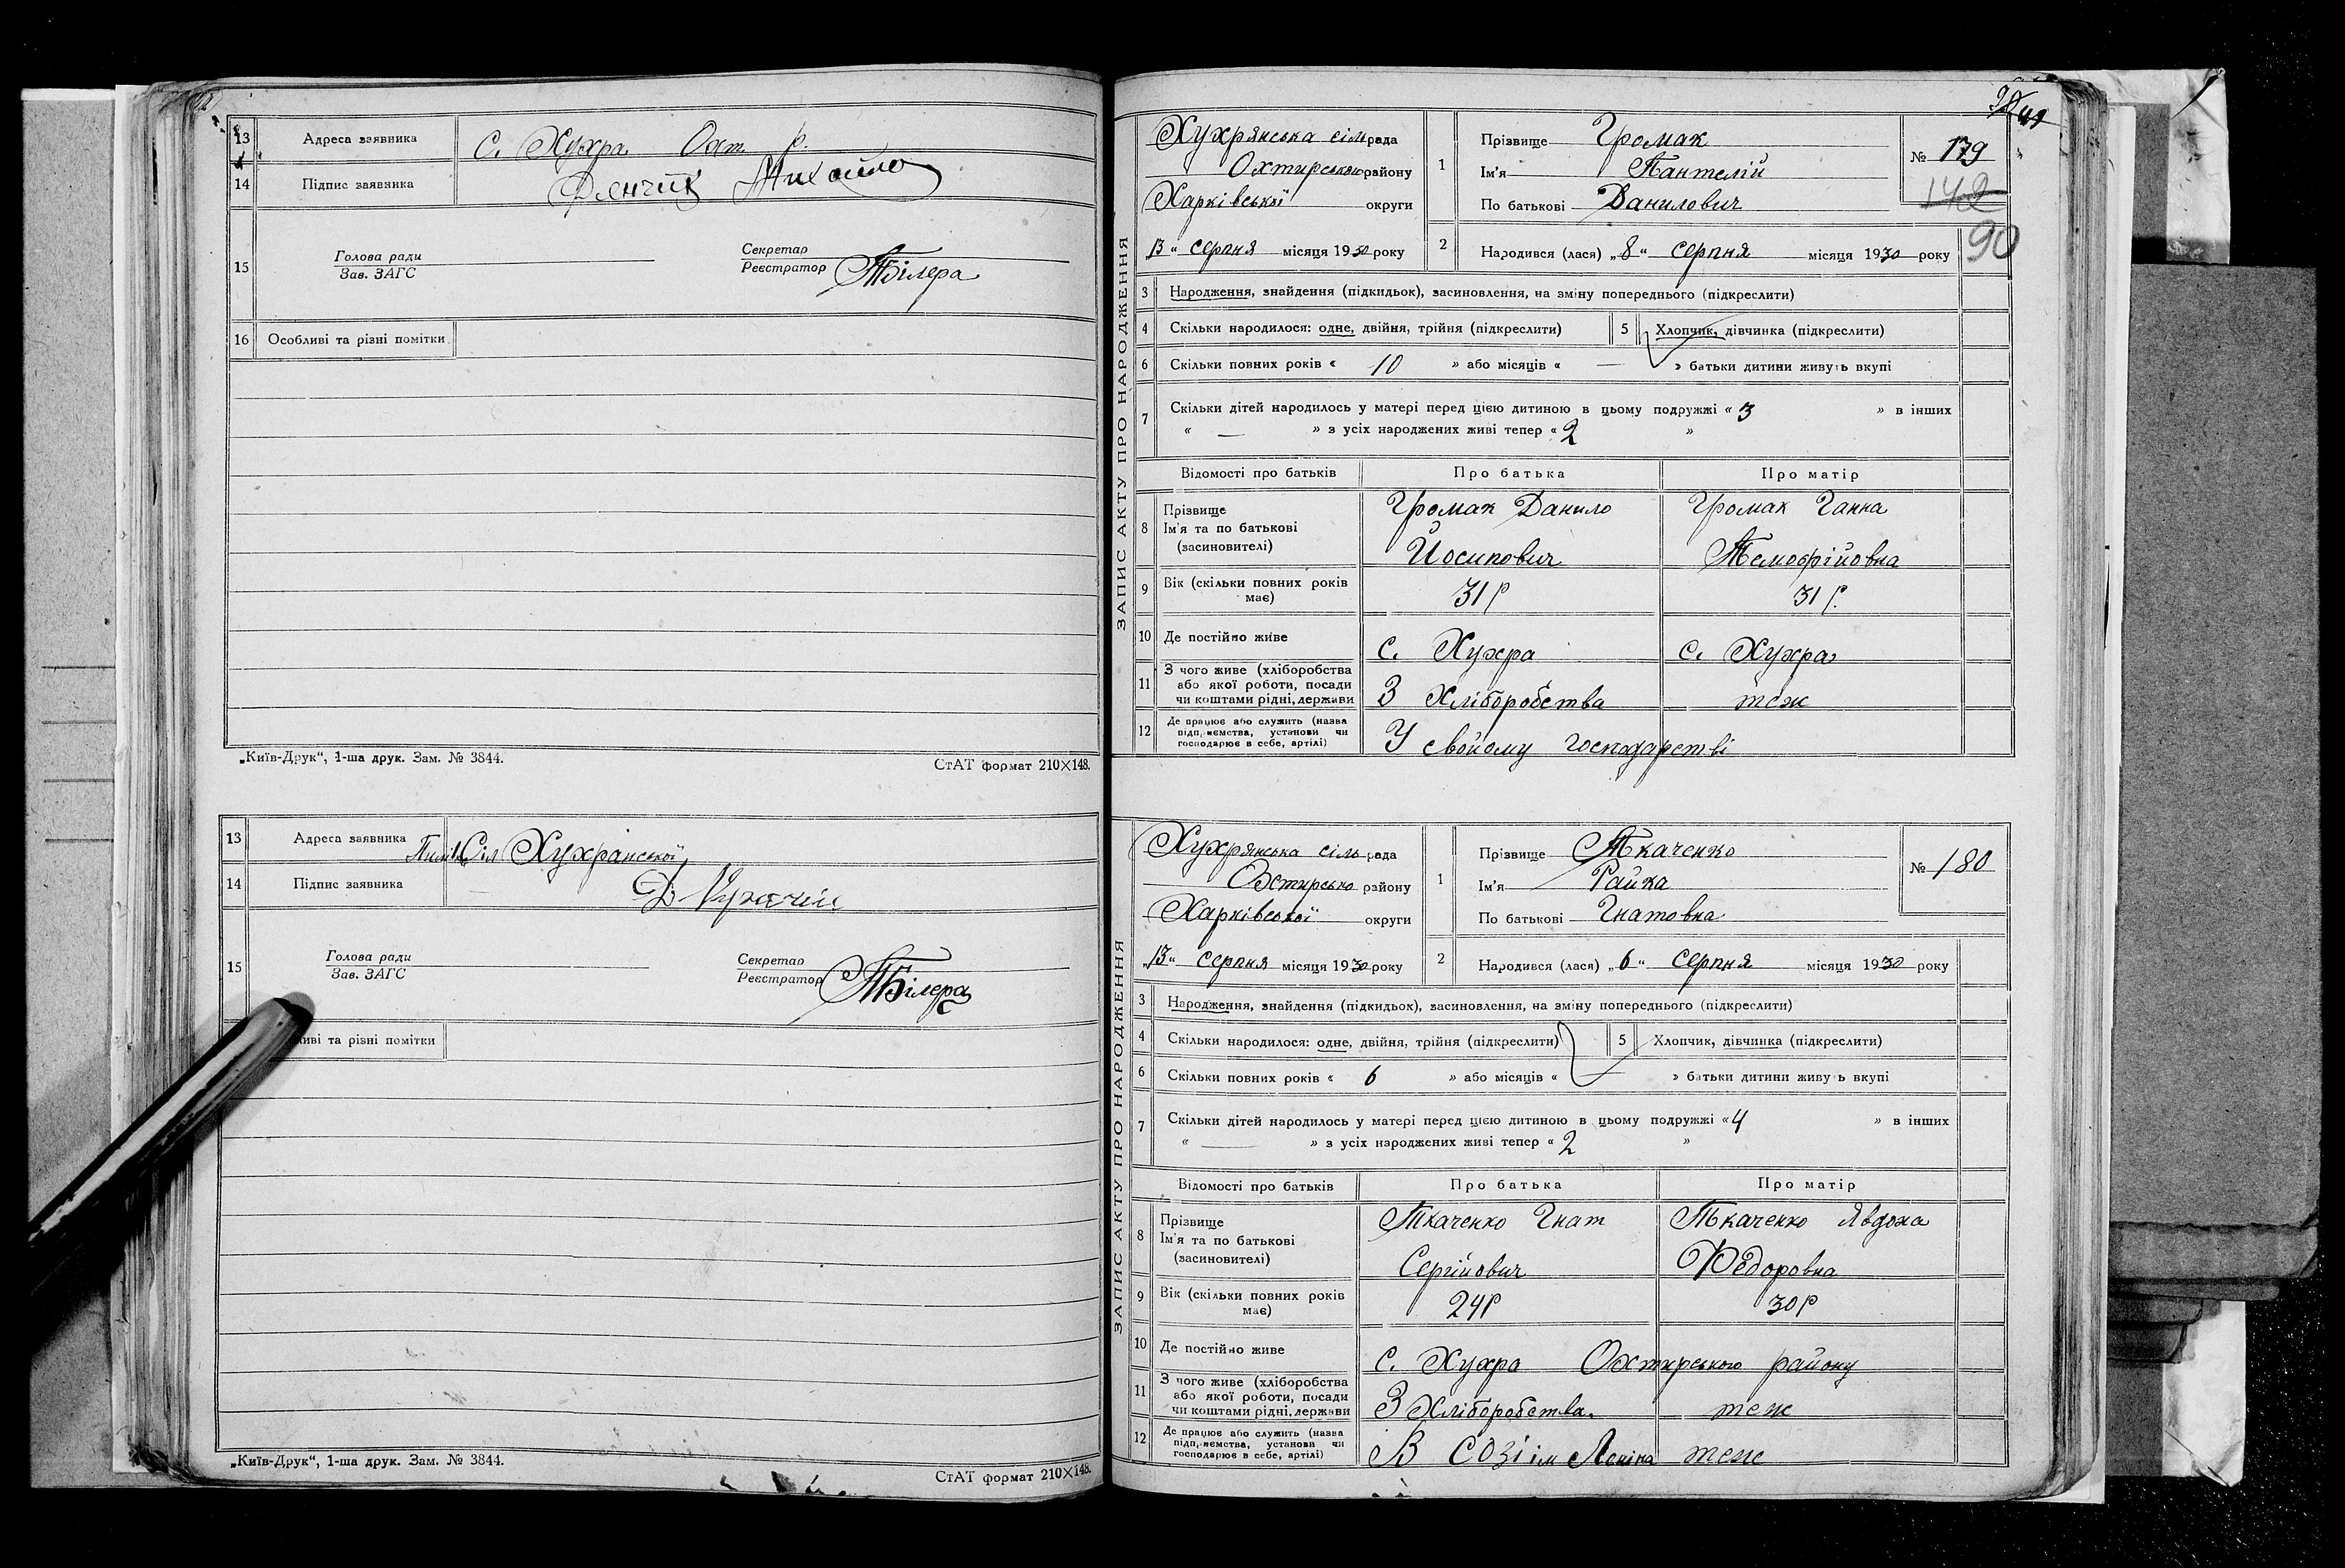 13 Адреса заявника С. Хухра Охт р.
14 Підпис заявника Михайло
15 Голова ради Секретар
Зав. ЗАГС Реєстратор ТБілера
16 Особливі та різні помітки
„Київ-Друк“, 1-ша друк. Зам. № 3844. СтАТ формат 210×148.
13 Адреса заявника Сіл Хухранської
14 Підпис заявника
15 Голова ради Секретар
Зав. ЗАГС Реєстратор ТБілера
иві та різні помітки
„Київ-Друк“, 1-ша друк. Зам. № 3844. СтАТ формат 210×148.
ЗАПИС АКТУ ПРО НАРОДЖЕННЯ
Хухрянська сільрада 1 Прізвище Громак № 179
Охтирського району Ім'я Пантелій 142
Харківської округи По батькові Данилович
13 “ серпня місяця 1930 року 2 Народився (лася) „ 8 “ серпня місяця 1930 року 90
3 Народження, знайдення (підкидьок), засиновлення, на зміну попереднього (підкреслити)
4 Скільки народилося: одне, двійня, трійня (підкреслити) 5 Хлопчик, дівчинка (підкреслити)
6 Скільки повних років « 10 » або місяців « — » батьки дитини живуть вкупі
7 Скільки дітей народилось у матері перед цією дитиною в цьому подружжі « 3 » в інших
« — » з усіх народжених живі тепер « 2 »
Відомості про батьків Про батька Про матір
8 Прізвище Громак Данило Громак Ганна
Ім'я та по батькові
(засиновителі) Йосипович Темофійовна
9 Вік (скільки повних років має) 31 р 31 р.
10 Де постійно живе с. Хухра с. Хухра
11 З чого живе (хліборобства
або якої роботи, посади
чи коштами рідні, держави З Хліборобства теж
12 Де працює або служить (назва
підприємства, установи чи
господарює в себе, артілі) У свойому господарстві
ЗАПИС АКТУ ПРО НАРОДЖЕННЯ
Хухрянська сільрада 1 Прізвище Ткаченко № 180
Охтирсько району Ім'я Райка
Харківської округи По батькові Гнатовна
„ 13 “ серпня місяця 1930 року 2 Народився (лася) „ 6 “ серпня місяця 1930 року
3 Народження, знайдення (підкидьох), засиновлення, на зміну попереднього (підкреслити)
4 Скільки народилося: одне, двійня, трійня (підкреслити) 5 Хлопчик, дівчинка (підкреслити)
6 Скільки повних років « 6 » або місяців « — » батьки дитини живуть вкупі
7 Скільки дітей народилось у матері перед цією дитиною в цьому подружжі « 4 » в інших
« — » з усіх народжених живі тепер « 2 »
Відомості про батьків Про батька Про матір
8 Прізвище Ткаченко Гнат Ткаченко Явдоха
Ім'я та по батькові
(засиновителі) Сергійович Федоровна
9 Вік (скільки повних років має) 24 р 30 р
10 Де постійно живе с. Хухра Охтирського району
11 З чого живе (хліборобства
або якої роботи, посади
чи коштами рідні, держави З Хліборобства. теж
12 Де працює або служить (назва
підприємства, установи чи
господарює в себе, артілі) В СОЗі ім Леніна теж